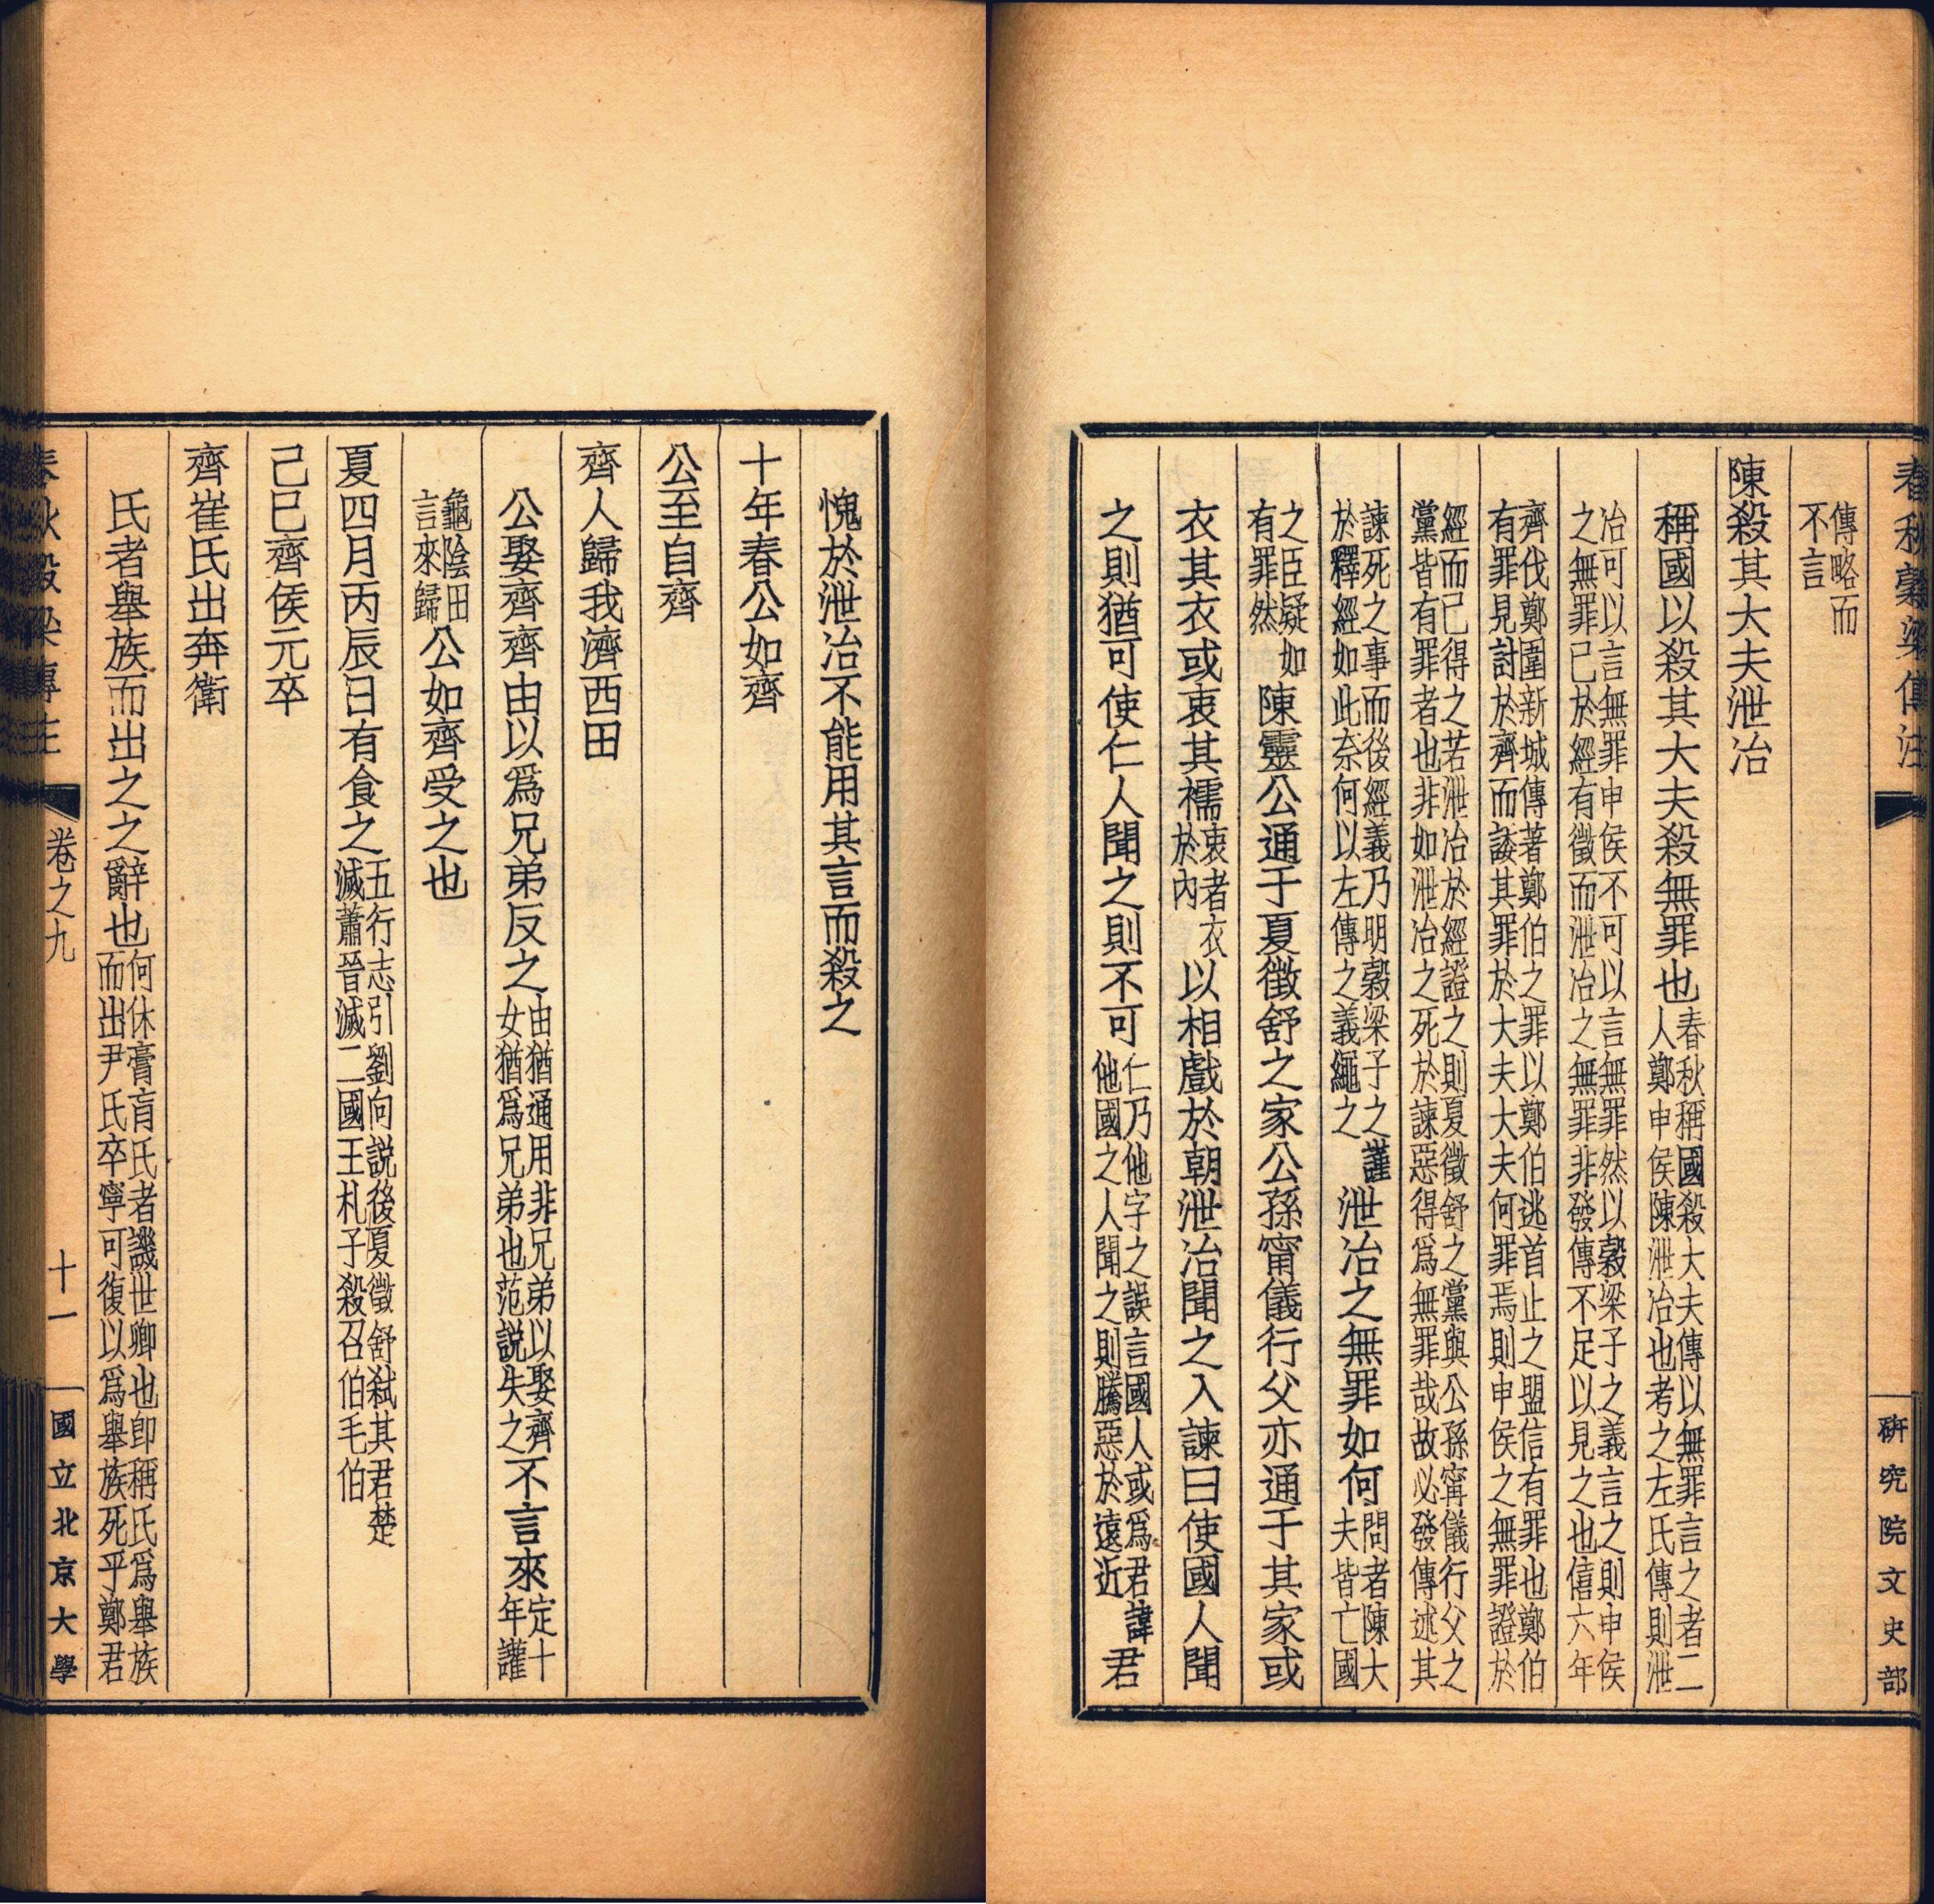 春秋穀梁傳注
研究院文史部
傳略而
不言
陳殺其大夫泄冶
稱國以殺其大夫殺無罪也春秋稱國殺大夫傳以無罪言之者二
人鄭申侯陳泄冶也考之左氏傳則泄
冶可以言無罪申侯不可以言無罪然以穀梁子之義言之則申侯
之無罪已於經有徵而泄冶之無罪非發傳不足以見之也僖六年
齊伐鄭圍新城傳著鄭伯之罪以鄭伯逃首止之盟信有罪也鄭伯
有罪見討於齊而諉其罪於大夫大夫何罪焉則申侯之無罪證於
經而已得之若泄冶於經證之則夏徵舒之黨與公孫甯儀行父之
黨皆有罪者也非如泄冶之死於諫惡得為無罪哉故必發傳述其
諫死之事而後經義乃明穀梁子之謹
於釋經如此奈何以左傳之義繩之
泄冶之無罪如何問者陳大
夫皆亡國
之臣疑如
有罪然
陳靈公通于夏徵舒之家公孫甯儀行父亦通于其家或
衣其衣或衷其襦衷者衣
於內
以相戲於朝泄冶聞之入諫曰使國人聞
之則猶可使仁人聞之則不可仁乃他字之誤言國人或爲君諱
他國之人聞之則騰惡於遠近
君
愧於泄冶不能用其言而殺之
十年春公如齊
公至自齊
齊人歸我濟西田
公娶齊齊由以爲兄弟反之由猶通用非兄弟以娶齊
女猶爲兄弟也范説失之
不言來定十
年讙
龜陰田
言來歸
公如齊受之也
夏四月丙辰日有食之五行志引劉向説後夏徵舒弒其君楚
滅蕭晉滅二國王札子殺召伯毛伯
己巳齊侯元卒
齊崔氏出奔衛
氏者舉族而出之之辭也何休膏肓氏者譏世卿也卽稱氏爲舉族
而出尹氏卒寧可復以爲舉族死乎鄭君
春秋穀梁傳注
卷之九
十一
國立北京大學